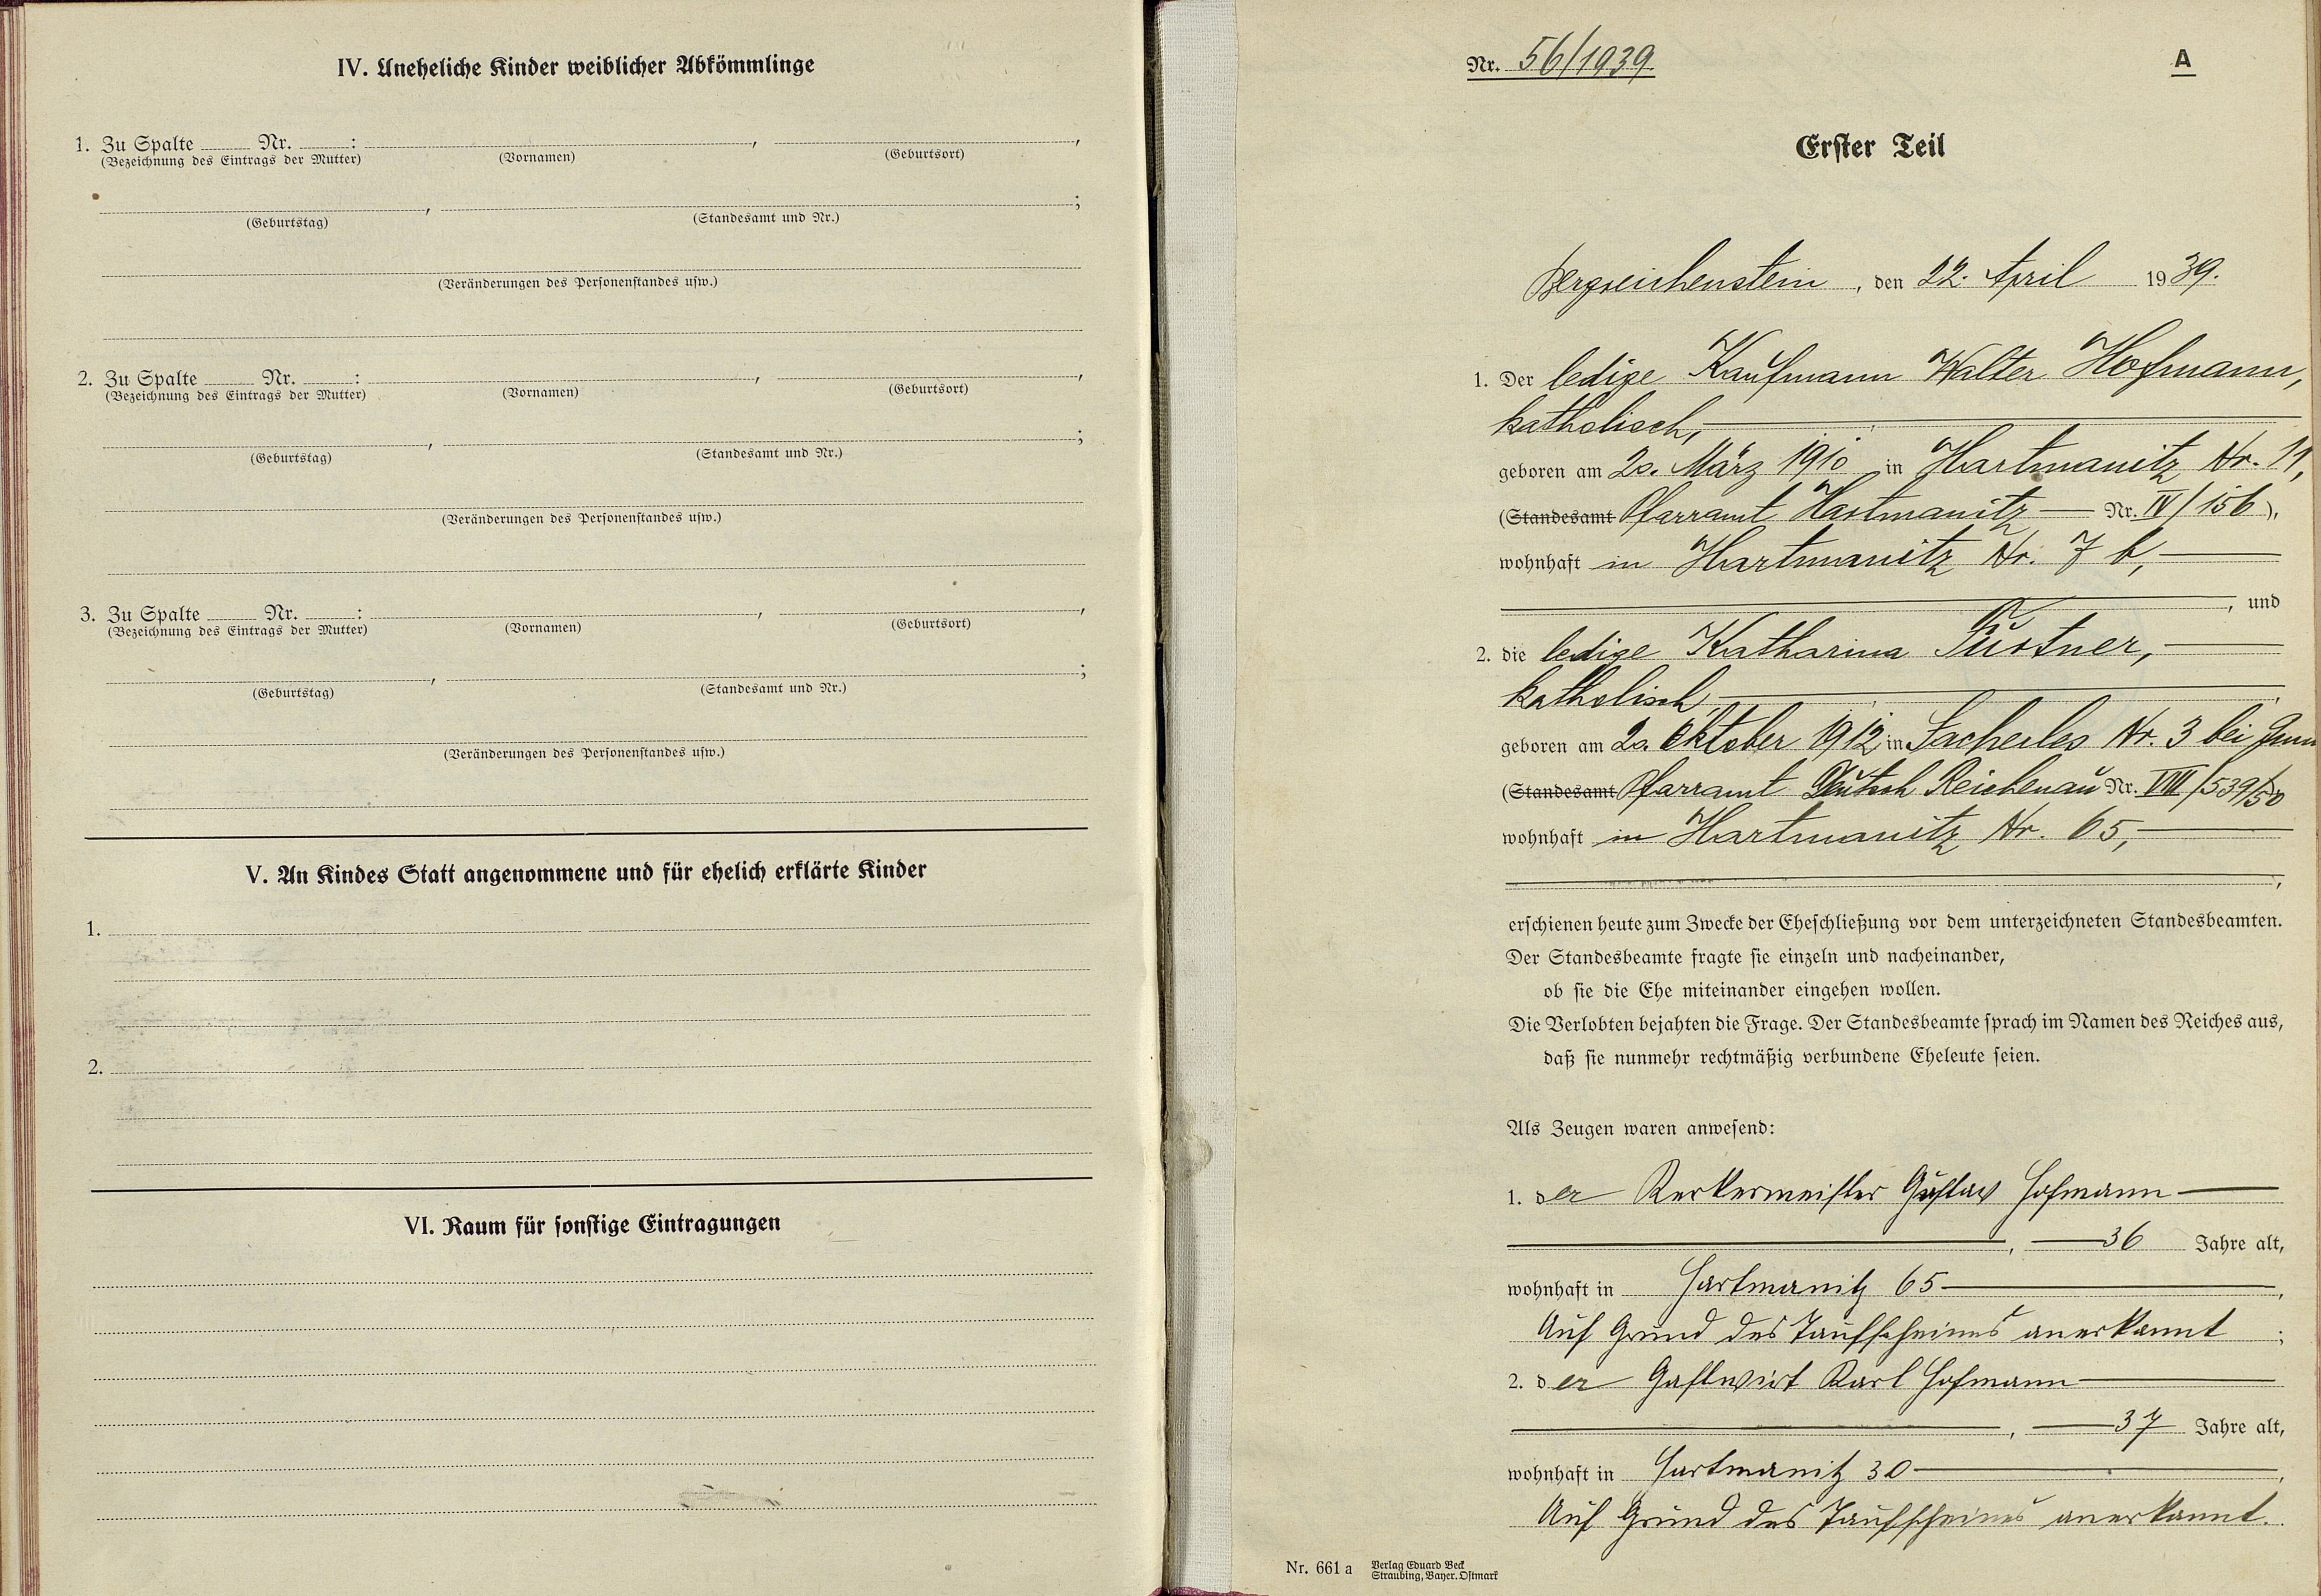 IV. Uneheliche Kinder weiblicher Abkömmlinge
1. Zu Spalte Nr. : , ,
(Bezeichnung des Eintrags der Mutter) (Vornamen) (Geburtsort)
, ;
(Geburtstag) (Standesamt und Nr.)
(Veränderungen des Personenstandes usw.)
2. Zu Spalte Nr. : , ,
(Bezeichnung des Eintrags der Mutter) (Vornamen) (Geburtsort)
, ;
(Geburtstag) (Standesamt und Nr.)
(Veränderungen des Personenstandes usw.)
3. Zu Spalte Nr. : , ,
(Bezeichnung des Eintrags der Mutter) (Vornamen) (Geburtsort)
, ;
(Geburtstag) (Standesamt und Nr.)
(Veränderungen des Personenstandes usw.)
V. An Kindes Statt angenommene und für ehelich erklärte Kinder
1.
2.
VI. Raum für sonstige Eintragungen
Nr. 56/1939.
A
Erster Teil
Bergreichenstein, den 22. April 1939.
1. Der ledige Kaufmann Walter Hofmann,
katholisch,
geboren am 20. März 1910 in Hartmanitz Nr. 11,
(Standesamt Pfarramt Hartmanitz Nr. IV/156),
wohnhaft in Hartmanitz Nr. 7 b,
, und
2. die ledige Katharina
katholisch,
geboren am 20. Oktober 1912 in Sacherles Nr. 3 bei
(Standesamt Pfarramt Deutsch Reichenau Nr. VIII/539/50
wohnhaft in Hartmanitz Nr. 65,
,
erschienen heute zum Zwecke der Eheschließung vor dem unterzeichneten Standesbeamten.
Der Standesbeamte fragte sie einzeln und nacheinander,
ob sie die Ehe miteinander eingehen wollen.
Die Verlobten bejahten die Frage. Der Standesbeamte sprach im Namen des Reiches aus,
daß sie nunmehr rechtmäßig verbundene Eheleute seien.
Als Zeugen waren anwesend:
1. der Kerkermeister Gustav Hofmann
, 36 Jahre alt,
wohnhaft in Hartmanitz 65,
Auf Grund des Taufscheines anerkannt ;
2. der Gastwirt Karl Hofmann
, 37 Jahre alt,
wohnhaft in Hartmanitz 30,
Auf Grund des Taufscheines anerkannt.
Nr. 661 a Verlag Eduard Beck
Straubing, Bayer. Ostmark